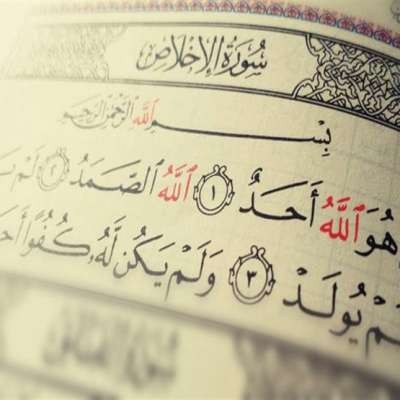 سُورَةُ الإِخْلَاصِ
بِسْمِ ٱللَّهِ ٱلرَّحْمَٰنِ ٱلرَّحِيمِ
هُوَ ٱللَّهُ أَحَدٌ ١ ٱللَّهُ ٱلصَّمَدُ ٢ لَمْ
يُولَدْ ٣ وَلَمْ يَكُن لَّهُۥ كُفُوًا